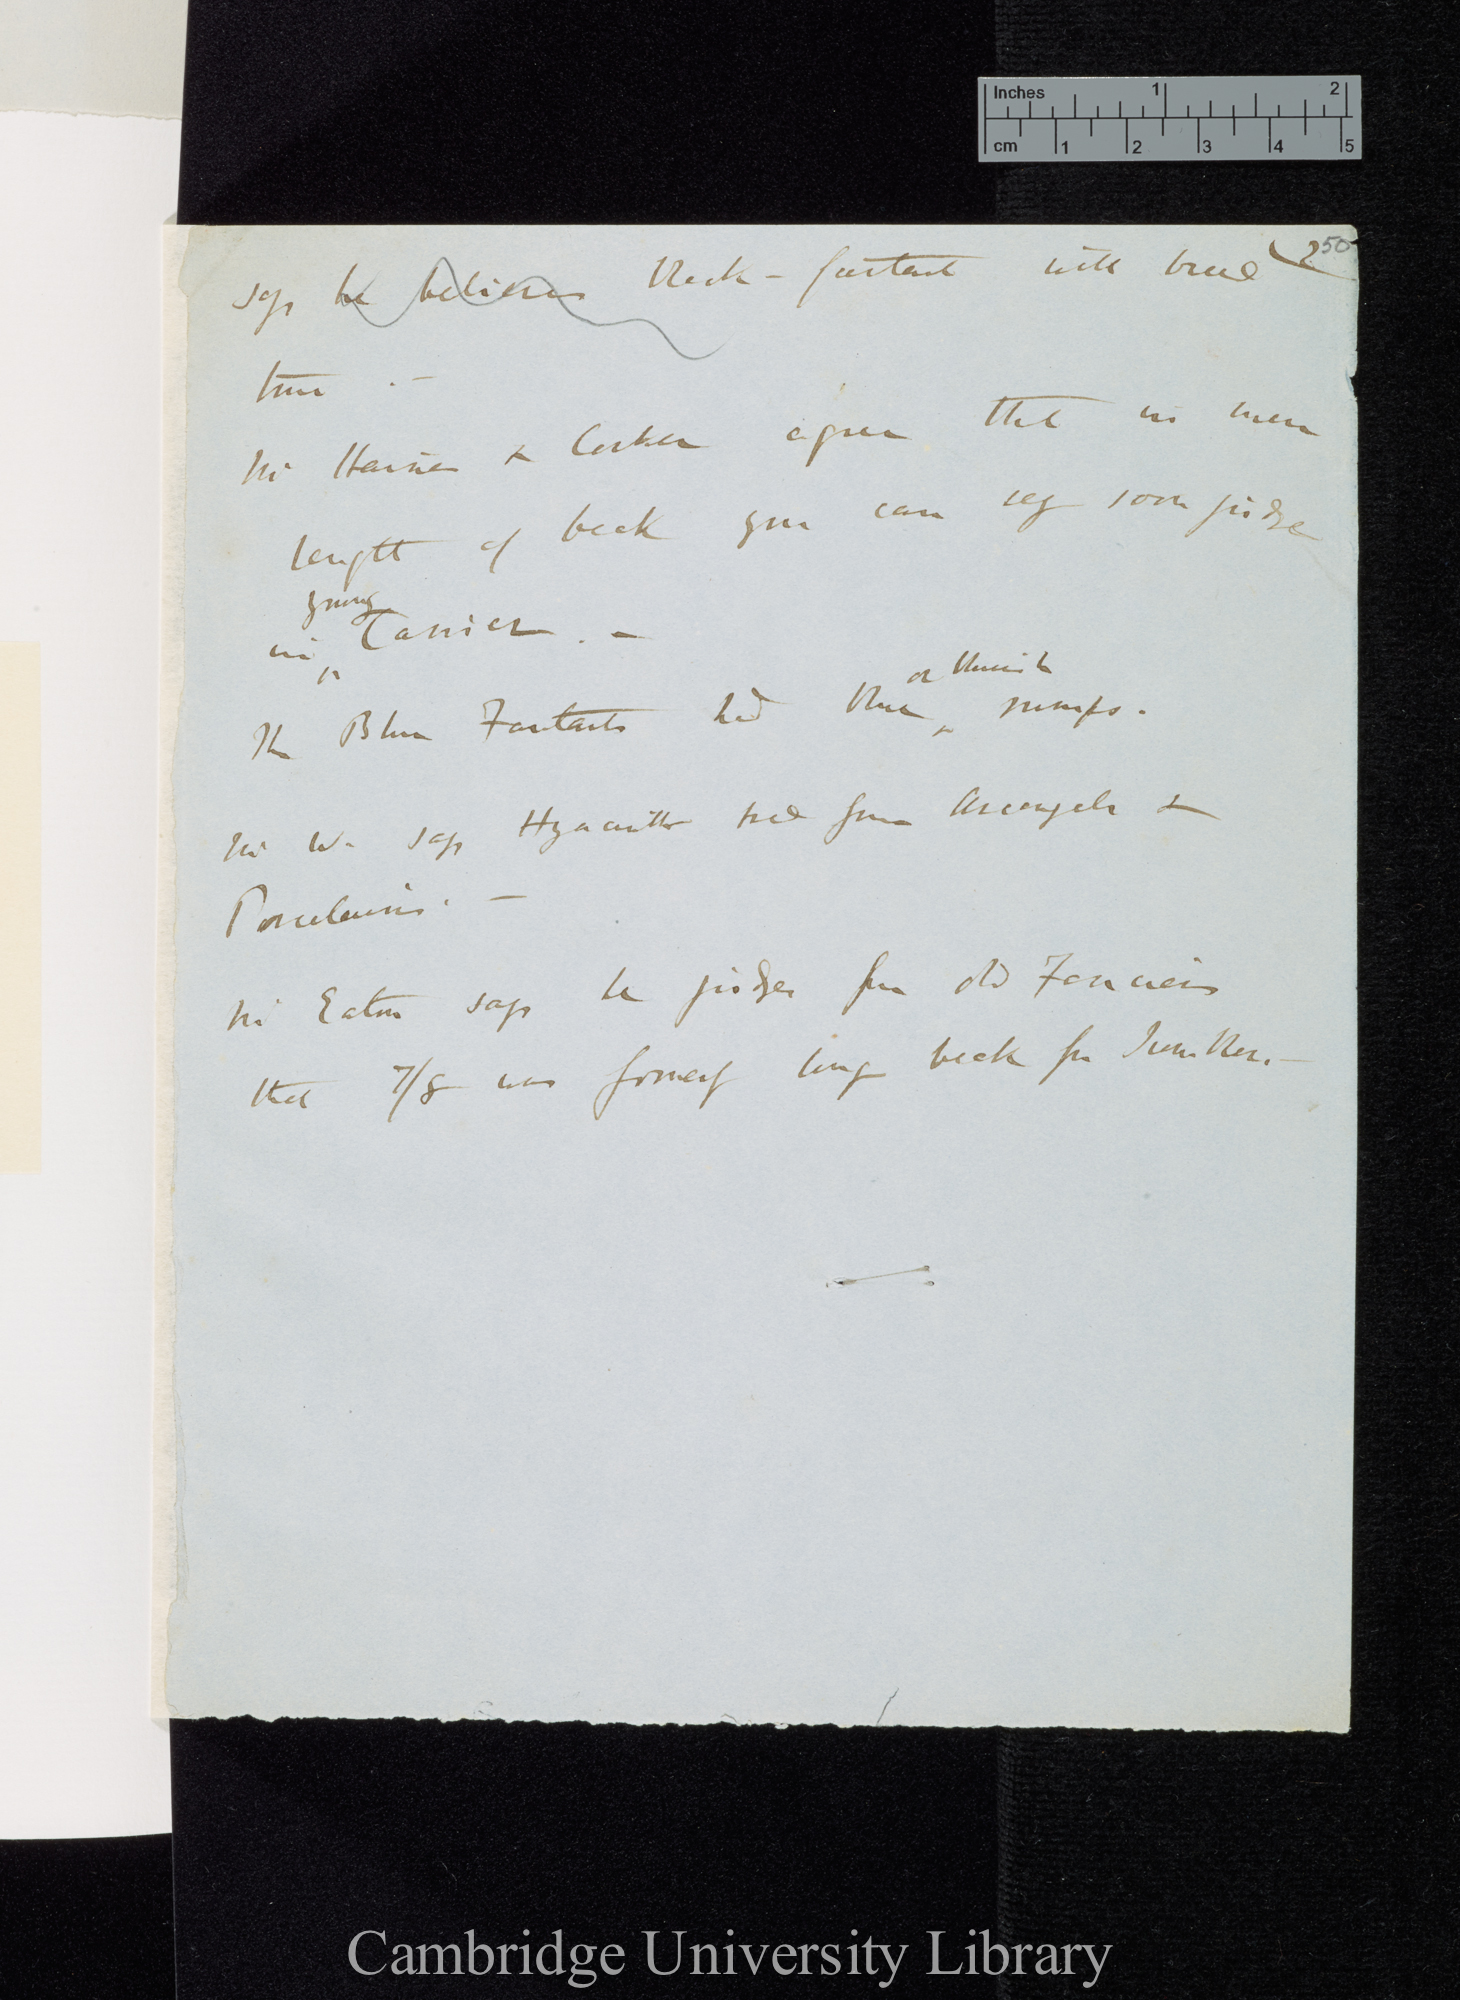 Inches 1 2
cm 1 2 3 4 5
2 50
says he believes Black-fantail will breed
true .—
Mr Haines & Corker agree that in mere
length of beak you can very soon judge
in ^young Carrier . —
The Blue Fantails had blue ^or blueish rumps.
Mr W. says Hyacinths bred from Arcangels &
Porcelains. —
Mr Eaton says he judges from old Fanciers
that 7/8 was formerly long beak for Tumbler. —
Cambridge University Library